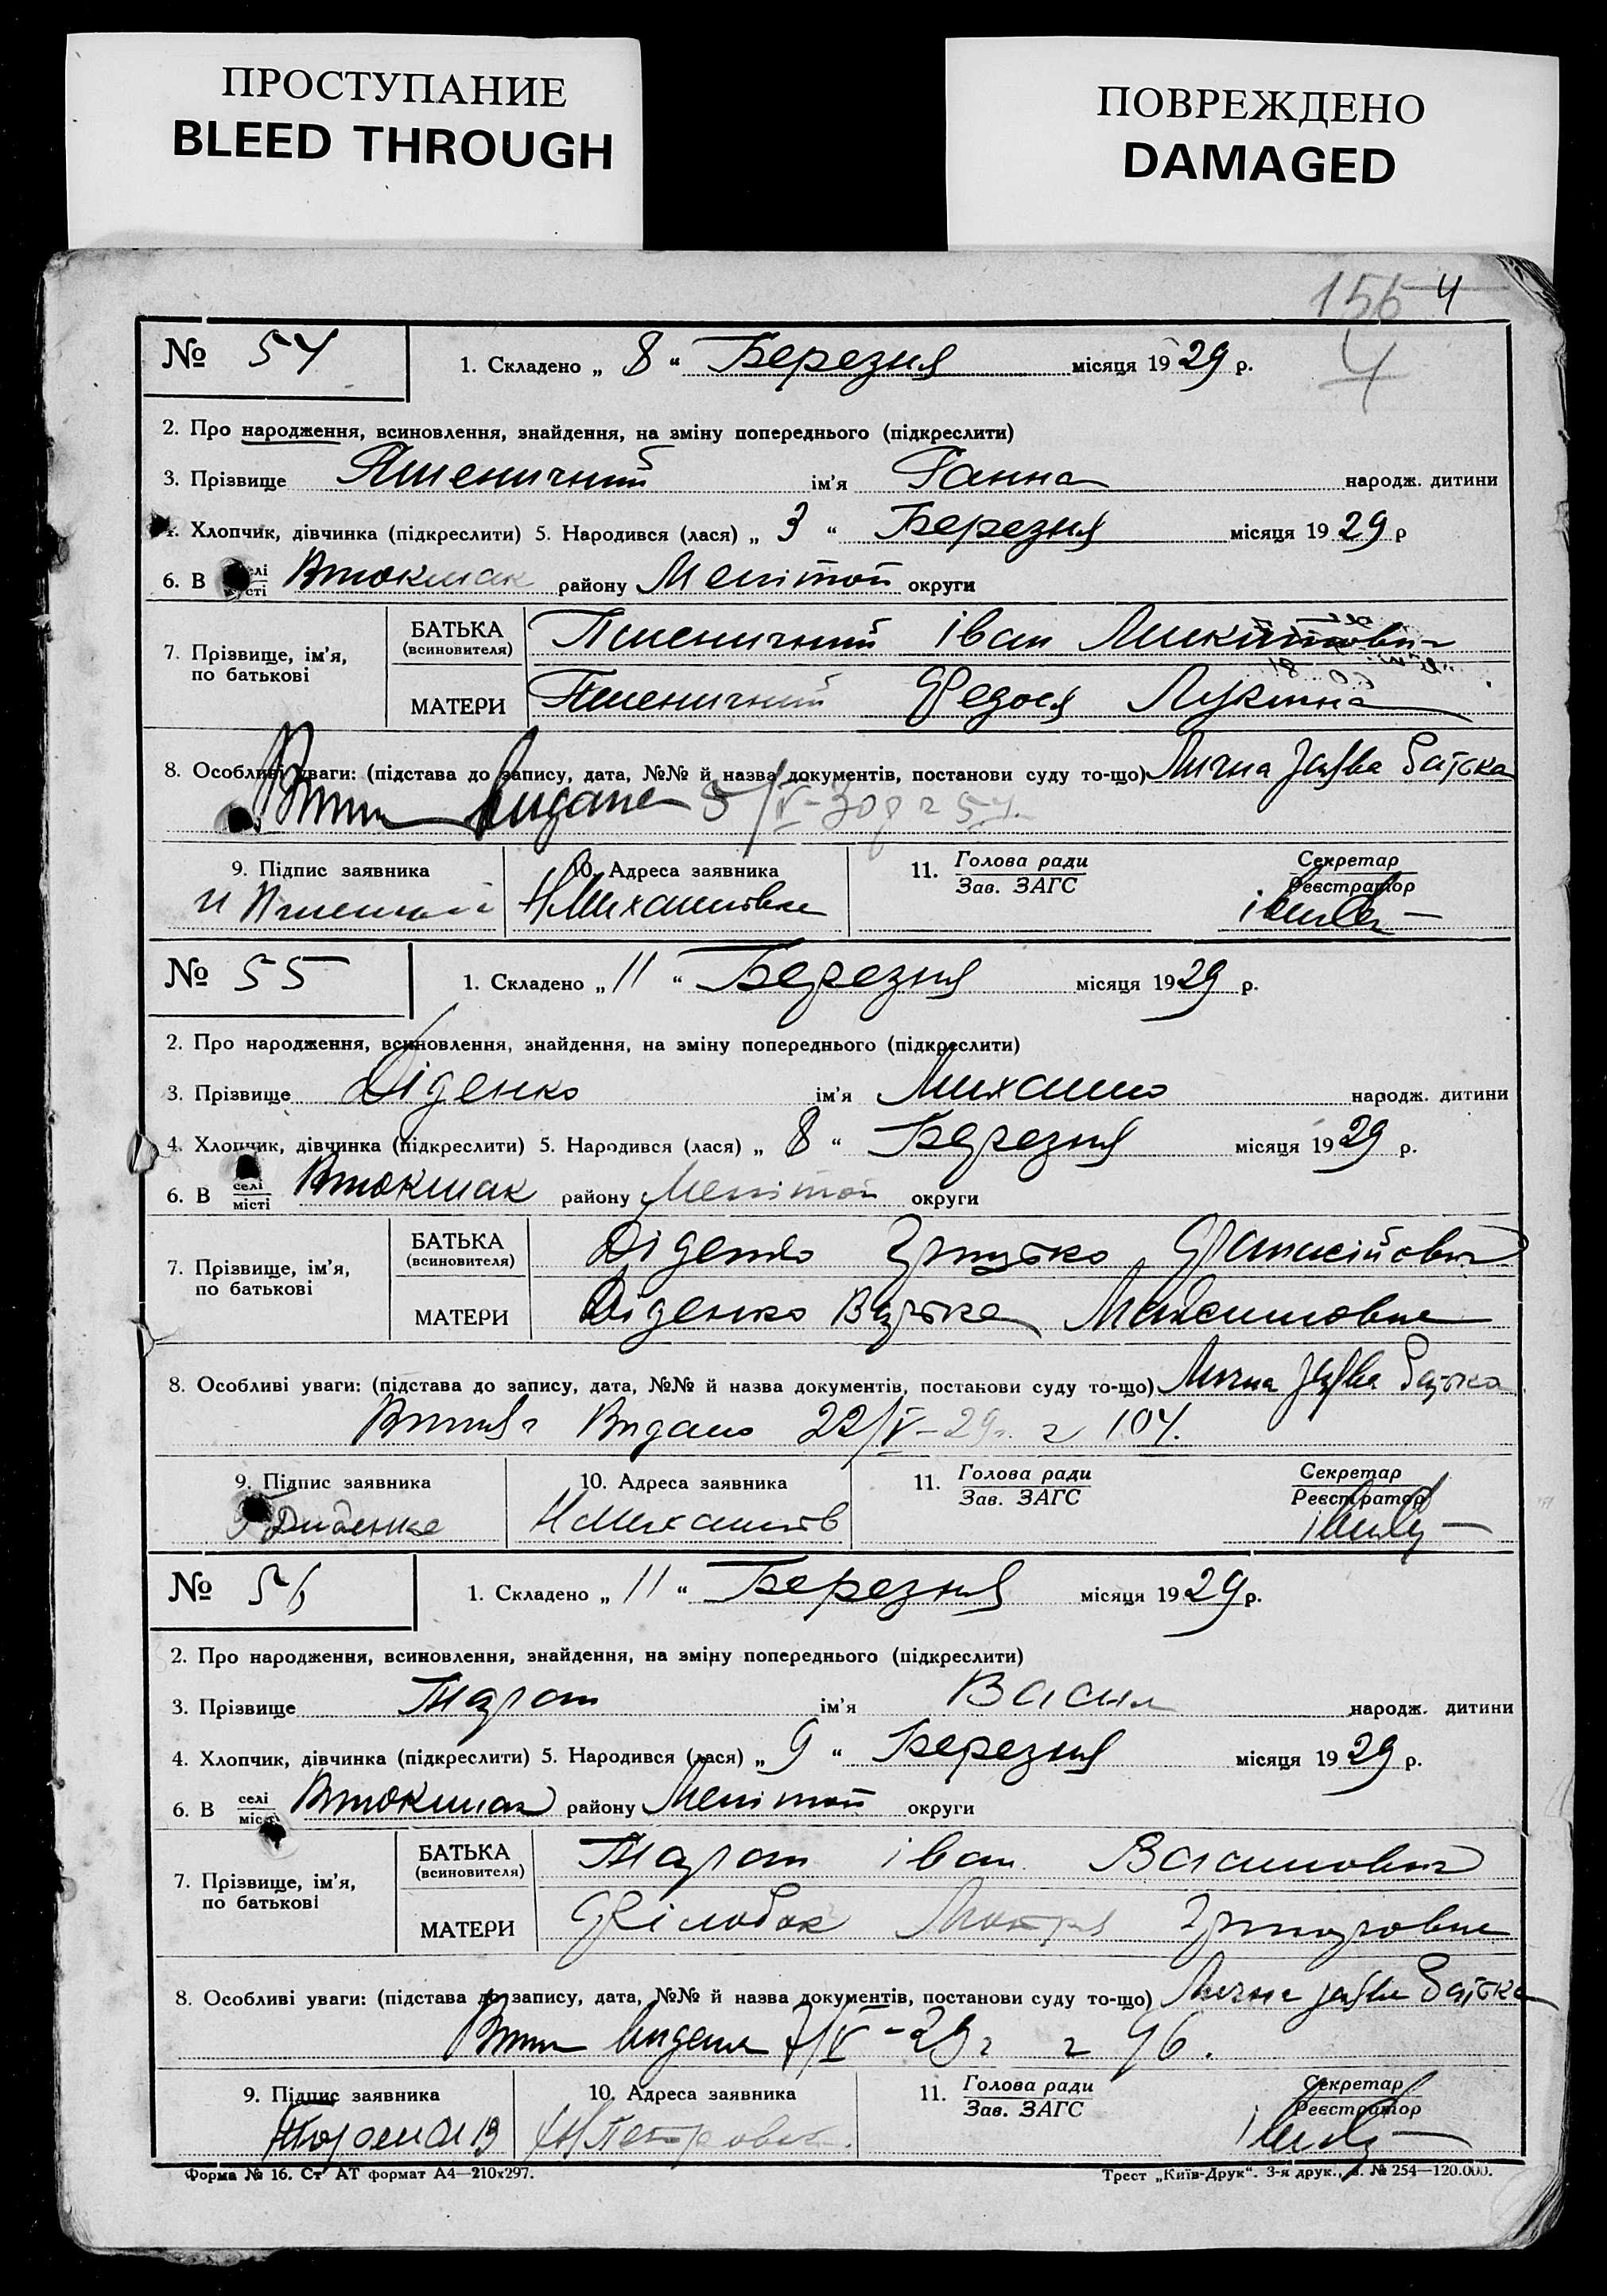 ПРОСТУПАНИЕ
BLEED THROUGH
ПОВРЕЖДЕНО
DAMAGED
156 4
4
№ 54 1. Складено „ 8 “ Березня місяця 1929 р.
2. Про народження, всиновлення, знайдення, на зміну попереднього (підкреслити)
3. Прізвище Пшеничний ім'я Ганна народж. дитини
4. Хлопчик, дівчинка (підкреслити) 5. Народився (лася) „ 3 “ Березня місяця 1929 р
6. В селі місті Втокмак району Мелітоп округи
7. Прізвище, ім'я, по батькові БАТЬКА (всиновителя) Пшеничний Іван Микитович
МАТЕРИ Пшеничний Федося Лукинна
8. Особливі уваги: (підстава до запису, дата, №№ й назва документів, постанови суду то-що) Лична заява батька
видано 5/V-30 р 54.
9. Підпис заявника 10. Адреса заявника 11. Голова ради Зав. ЗАГС Секретар Реєстратор
Н Михайлівка
№ 55 1. Складено „ 11 “ Березня місяця 1929 р.
2. Про народження, всиновлення, знайдення, на зміну попереднього (підкреслити)
3. Прізвище Діденко ім'я Михайло народж. дитини
4. Хлопчик, дівчинка (підкреслити) 5. Народився (лася) „ 8 “ Березня місяця 1929 р.
6. В селі місті Втокмак району Мелітоп округи
7. Прізвище, ім'я, по батькові БАТЬКА (всиновителя) Діденко Грицько
МАТЕРИ Діденко Варька Максимовна
8. Особливі уваги: (підстава до запису, дата, №№ й назва документів, постанови суду то-що) Лична заява батька
Видано 22/V-29 104.
9. Підпис заявника 10. Адреса заявника 11. Голова ради Зав. ЗАГС Секретар Реєстратор
Диденко Н Михайлів
№ 56 1. Складено „ 11 “ Березня місяця 1929 р.
2. Про народження, всиновлення, знайдення, на зміну попереднього (підкреслити)
3. Прізвище Таран ім'я Василь народж. дитини
4. Хлопчик, дівчинка (підкреслити) 5. Народився (лася) „ 9 “ Березня місяця 1929 р.
6. В селі місті Втокмак району Мелітоп округи
7. Прізвище, ім'я, по батькові БАТЬКА (всиновителя) Таран Іван
МАТЕРИ Мотря Григоровна
8. Особливі уваги: (підстава до запису, дата, №№ й назва документів, постанови суду то-що) Лична заява батька
видана 7/V-29 г 96.
9. Підпис заявника 10. Адреса заявника 11. Голова ради Зав. ЗАГС Секретар Реєстратор
Форма № 16. Ст АТ формат А4—210х297.
Трест „Київ-Друк“. 3-я друк., з. № 254—120.000.